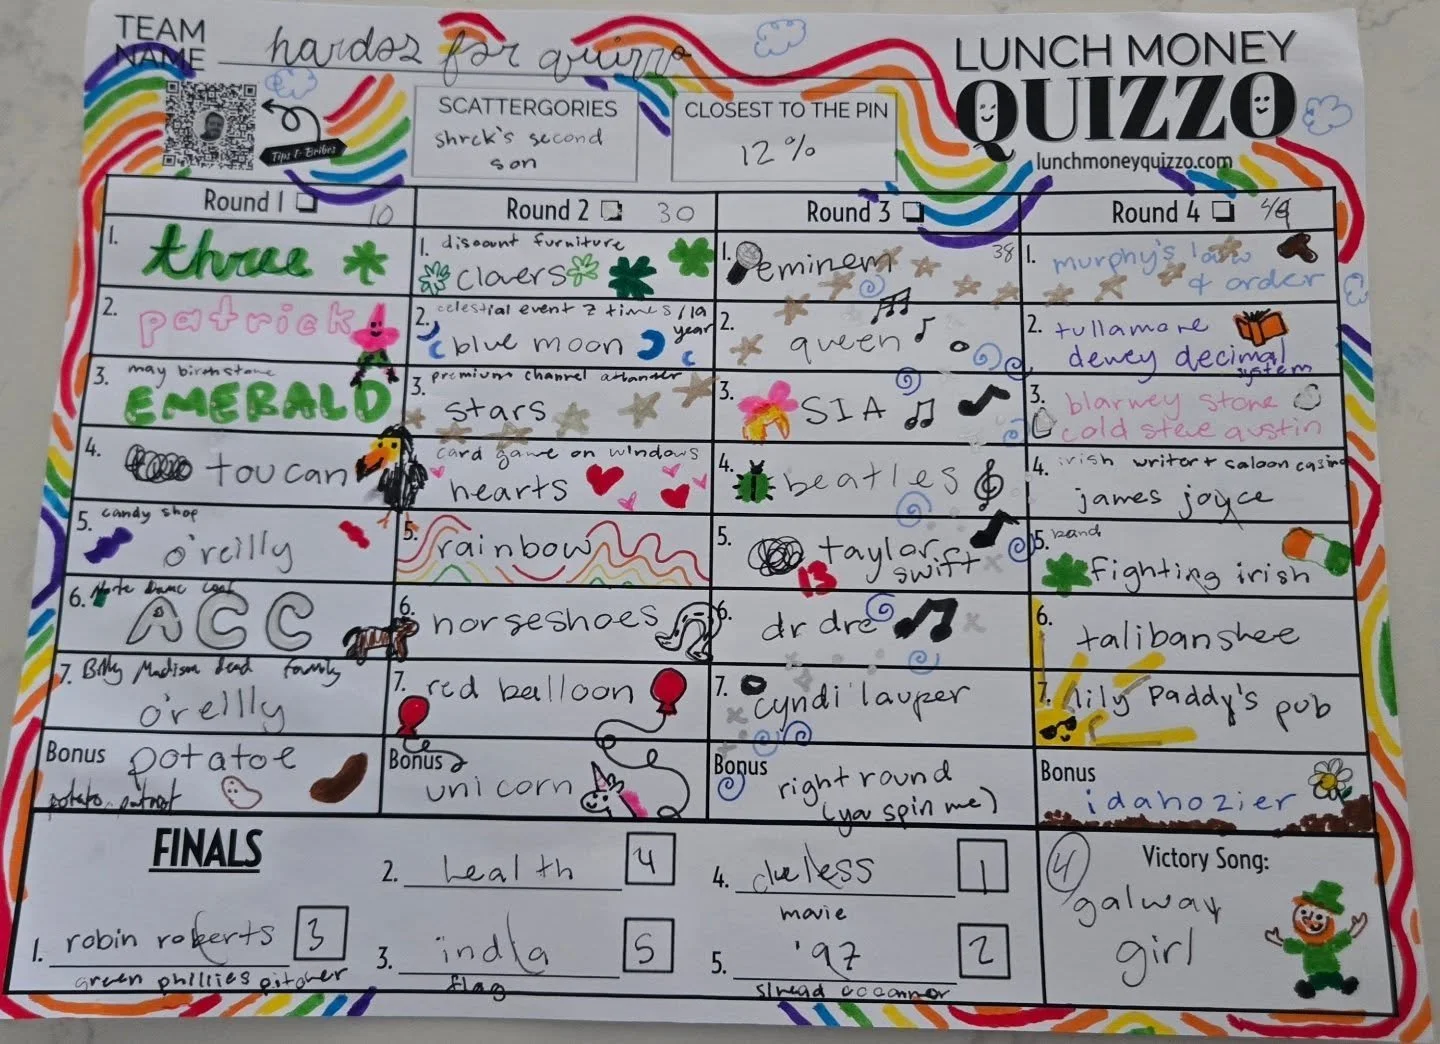 TEAM
NAME hardoz for quizzo
LUNCH MONEY
QUIZZO
lunchmoneyquizzo.com
Tips & Bribes
SCATTERGORIES
shrek's second
son
CLOSEST TO THE PIN
12%
Round 1 10
1. three
2. patrick
3. may birthstone
EMERALD
4. toucan
5. candy shop
o'reilly
6. Note Dame coat
ACC
7. Billy Madison dead family
o'reilly
Bonus potatoe
potato, patriot
Round 2 30
1. discount furniture
clovers
2. celestial event 7 times/19
year
blue moon
3. premium channel
stars
4. card game on windows
hearts
5. rainbow
6. horseshoes
7. red balloon
Bonus
unicorn
Round 3
1. eminem 38
2. queen
3. SIA
4. beatles
5. taylor
swift
13
6. dr dre
7. cyndi lauper
Bonus
right round
(you spin me)
Round 4
1. murphy's law
& order
2. tullamore
dewey decimal
system
3. blarney stone
cold steve austin
4. irish writer + saloon casino
james joyce
5. band
fighting irish
6. talibanshee
7. lily paddy's pub
Bonus
idahozier
FINALS
1. robin roberts 3
green phillies pitcher
2. health 4
3. india 5
flag
4. clueless 1
movie
5. '97 2
sinead oconnor
4
Victory Song:
galway
girl